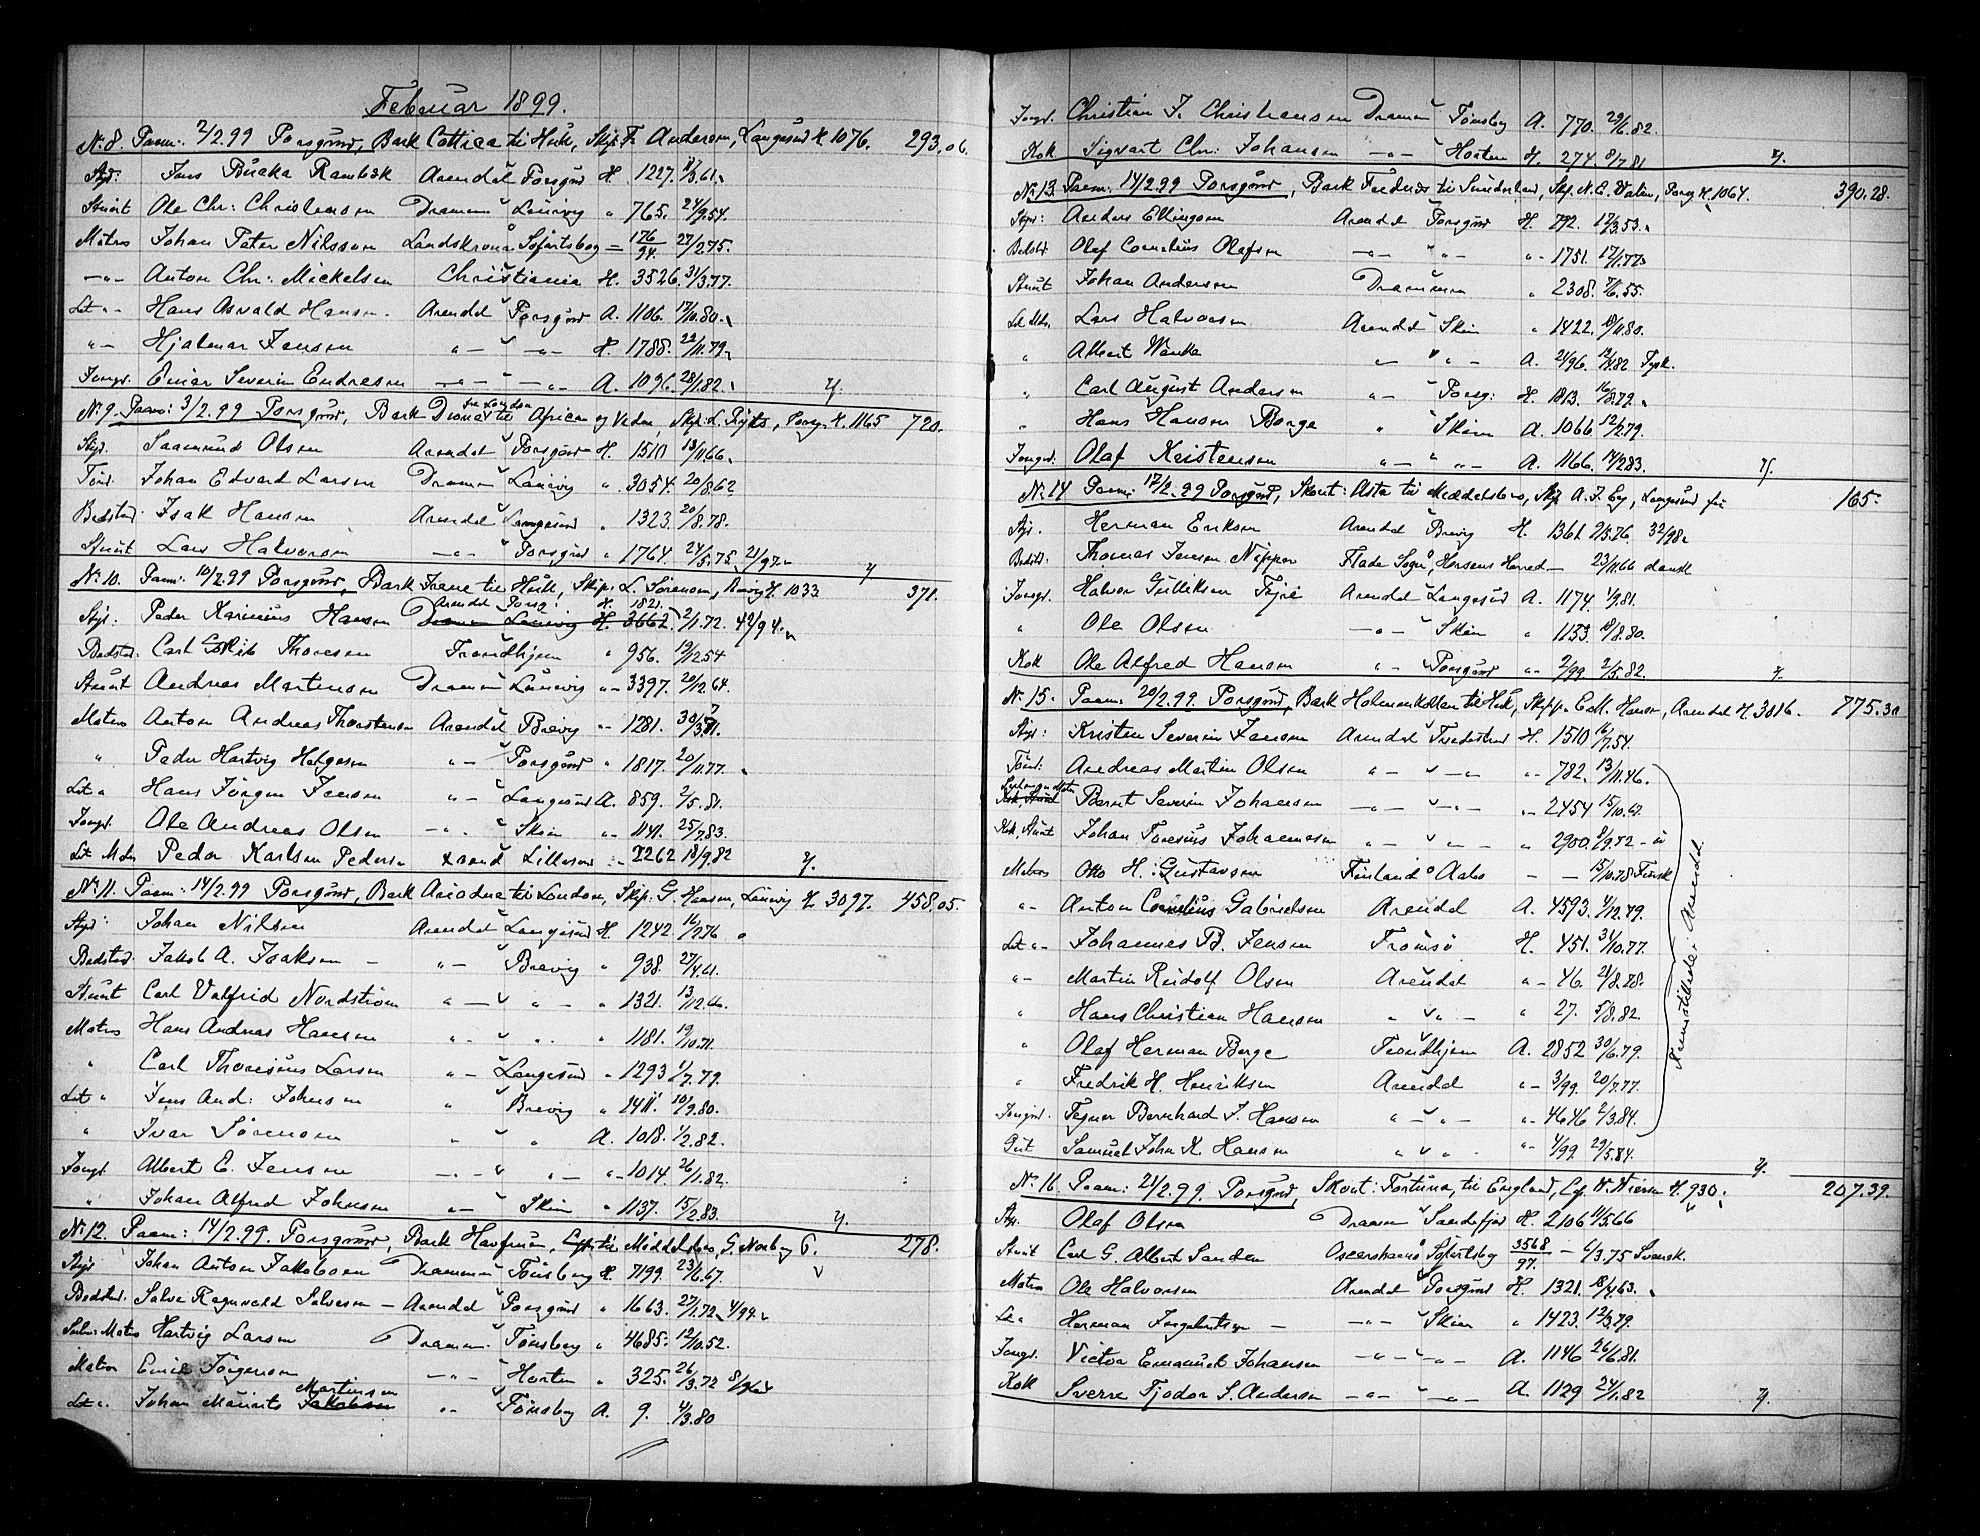 Februar 1899.
N. 8. Paam: 2/2.99 Porsgrund, Bark Cottica til Hull, Skip. Fr. Anderson, Langesund H. 1076. 293,06.
Styr: Jens Rambæk Arendal " Porsgrd H. 1227. 3.61.
Stuut Ole Chr: Christensen Drammen " Laurvig " 765. 24/9.54.
Matros Johan Peter Nilsson Landskrona Sjøfartsbog = 176/94. 27/2.75.
—"— Anton Chr: Mickelsen Christiania H. 3526. 31/3.77.
Let "- Hans Osvald Hansen. Arendal " Porsgrd A. 1106. 17/10.80.
"— Hjalmar Jensen "— " —"— H. 1788. 22/11.79.
Jungd. Einar Severin Endresen —"— " —"— A. 1096. 28/1.82. 7.
N. 9. Paam: 3/2.99 Porsgrund, Bark Diana fra London til Africa og Videre Skip. L. , Porsg. H. 1165 720.
Styr. Saamund Olsen Arendal " Porsgrund H. 1510 18/11.66.
Tømd. Johan Edvard Larsen Drammen " Laurvig " 3054. 20/8.62
Bedstd. Isak Hansen Arendal " Langesund " 1323. 20/8.78.
Stuut Lars Halvorsen —"— " Porsgrd " 1764. 24/5.75. 21/97. 7
N. 10. Paam: 10/2.99 Porsgrund, Bark Irene til Hull, Skip: L. Sørenson, Brevig H. 1033 371.
Arendal Porsg: H. 1821.
Styr. Peder Karinius Hansen Drammen Laurvig H. 3662. 2/1.72. 42/94.
Bedstd. Carl Gottlieb Thoresen Trondhjem " 956. 19/12.54
Stuut Andreas Martinsen Drammen " Laurvig "- 3397. 20/12.64.
Matros Anton Andreas Thorstensen Arendal " Brevig "- 1281. 30/3.71.
" Peder Hartvig Helgesen "— " Porsgrund " 1817. 20/11.77.
Let " Hans Jørgen Jensen "— " Langesund A. 859. 2/5.81.
Jungd. Ole Andreas Olsen —"— " Skien "- 1141. 25/7.83.
Let Mats Peder Karlsen Pedersen Arend " Lillesand "- 2262 18/9.82 7.
N. 11. Paam: 14/2.99 Porsgrund, Bark Ariadne til London, Skip: G. Hansen, Laurvig H. 3097. 458.05.
Styr: Johan Nilsen Arendal " Langesund H. 1242 16/2.76
Bedstd. Jakob A. Isaksen — "— " Brevig " 938. 27/4.61.
Stuut Carl Valfrid Nordstrøm "— " "— " 1321. 13/12.60.
Matros Hans Andreas Hansen "- " "- " 1181. 19/10.71.
" Carl Thoresius Larsen "— " Langesund " 1293 1/7.79.
Let " Jens And: Johnsen " " Brevig " 1411. 10/9.80.
" Ivar Sørensen " " " A. 1018. 1/2.82.
Jungd. Albert E. Jensen —"— " "— "- 1014. 26/1.82.
" Johan Alfred Johnsen "— " Skien " 1137. 15/2.83. 7.
N. 12. Paam: 14/2.99. Porsgrund, Bark Havfruen, til Middelsbro, G. Norberg 6. 278.
Styr Johan Anton Jakobsen Drammen " Tønsberg H. 7199. 23/6.67.
Bedstd. Salve Ragnvald Salvesen — Arendal " Porsgrund " 1663. 27/1.72. 4/94.
Matros Hartvig Larsen Drammen " Tønsberg " 4685. 12/10.52.
Matros Emil Jørgensen —"— " Horten " 325. 26/3.72
Martinsen
Let ". Johan Mauritz Jakobsen "- " Tønsberg A. 9. 4/3.80
Jungd. Christian F. Christiansen Drammen " Tønsberg A. 770. 29/6.82.
Kok Sigvart Chr: Johansen —"— " Horten H. 274. 8/7.81 7.
N. 13. Paam: 14/2.99 Porsgrund, Bark Fædnæs til Sunderland, Skp. N. E. , Porsg. H. 1064. 390.28.
Styr: Anders Ellingsen Arendal " Porsgrund H. 792. 12/3.53.
Bedstd. Olaf Cornelius Olafsen —"— " "— "- 1751. 17/1.77.
Stuut Johan Andersen Drammen " 2308. 7/6.55.
Let Mts. Lars Halvorsen Arendal " Skien " 1422. 18/11.80.
" Albert "— " "— A. 21/96. 12/11.82 Tysk.
" Carl August Andersen "— " Porsg: H. 1813. 16/8.79.
" Hans Hansen Borge " " Skien A. 1066 12/2.79.
Jungd. Olaf Kristensen "— " "— A. 1166. 14/2.83. 7.
N. 14 Paam: 17/2.99 Porsgrund, Skont: Asta til Middelsbro, Skp A. J. , Langesund 165.
Styr. Herman Eriksen Arendal " Brevig H. 1361. 21/5.76. 32/98.
Bedstd. Thomas Jensen Nipper Flade Sogn, Horsens Herred — 23/11.66 dansk
Jungd. Halvor Gulliksen Arendal " Langesund A. 1174. 1/9.81.
" Ole Olsen —"— " Skien " 1153. 18/8.80.
Kok Ole Alfred Hansen "— " Porsgrund "- 2/99. 2/5.82. 7.
N. 15. Paam: 20/2.99. Porsgrund, Bark Holmenkollen til Hull, Skip. E. M. Hansen, Arendal H. 3016. 775.30
Styr: Kristen Severin Jensen Arendal " Tvedestrand H. 1510 16/7.54.
Tømd: Andreas Martin Olsen "— " —"— "- 782. 13/11.46.
Kok, Stuut Bernt Severin Johansen —"— " —"— "- 2454 15/10.62.
Kok, Stuut Johan Toresius Johannesen "— " "— " 2900. 8/9.52
Matros Otto H. Gustavsen Finland Aabo — — 15/10.78 Finsk
"- Anton Cornelius Gabrielsen Arendal A. 4593. 4/12.79.
Let "- Johannes B. Jensen Tromsø H. 451. 31/10.77.
"- Martin Rudolf Olsen Arendal "- 46. 21/8.78.
" Hans Christian Hansen " " "— " 27. 5/8.82.
" Olaf Herman Berge Trondhjem A. 2852 30/6.79.
" Fredrik H. Henriksen Arendal "- 3/99. 20/7.77.
Jungd. Tegner Bernhard J. Hansen "— " "— "- 4646 2/3.84.
Gut Samuel John K. Hansen " " " "- 4/99. 29/5.84. 7.
Fremstillede i Arendal
N. 16. Paam: 21/2.99. Porsgrund, Skont: Fortuna, til England, W. H. 930. 207.39.
Styr. Olaf Olsen Drammen " Sandefjord H. 2106 11/5.66
Stuut Carl G. Albert Sanden Oscarshavns Sjøfartsbog 3568/97. — 4/3.75 Svensk.
Matros Ole Halvorsen Arendal " Porsgrund H. 1321. 18/4.63.
Let " Herman Ingebretsen — —"— " Skien " 1423. 12/3.79.
Jungd. Victor Emanuel Johansen —"— " —"— A. 1146 26/6.81.
Kok Sverre Fjodor S. Andersen —"— " —"— A. 1129 24/1.82 7.